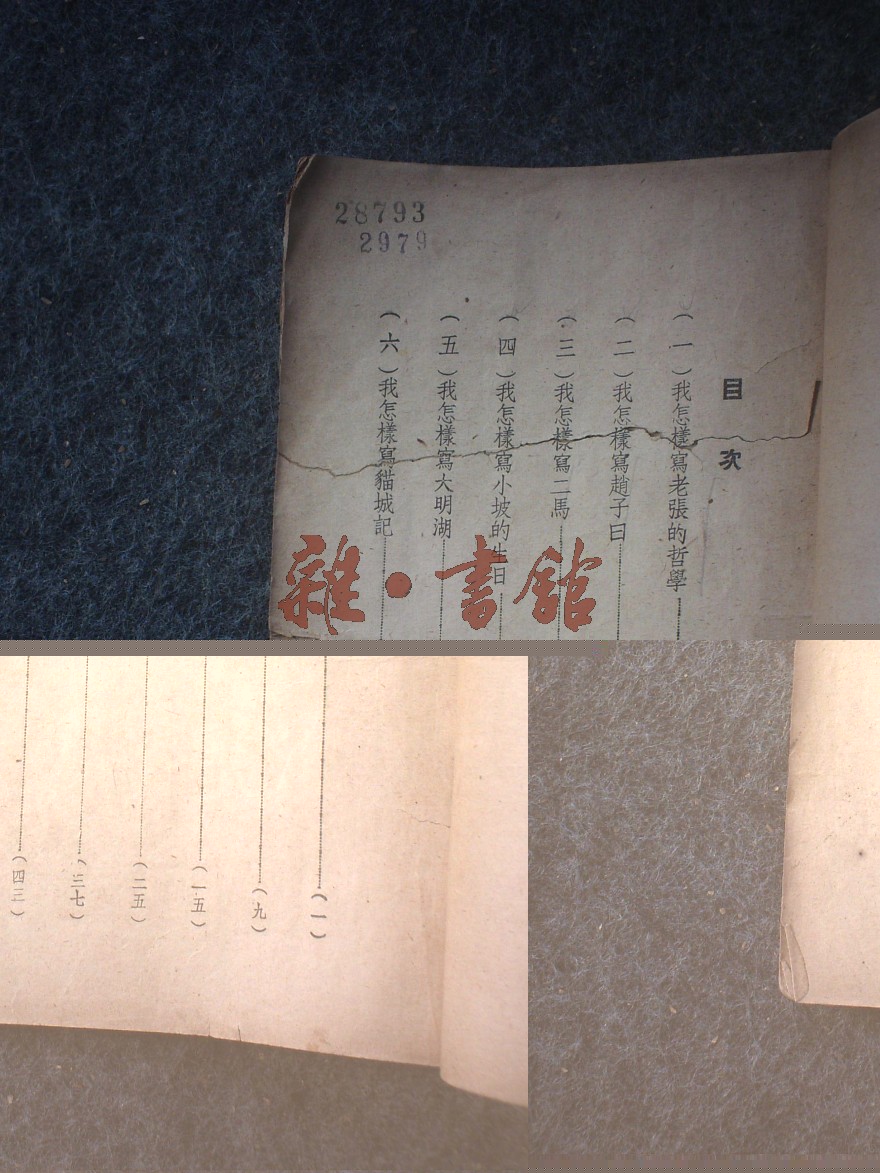 28793
2979
目次
(一)我怎樣寫老張的哲學
(二)我怎樣寫趙子曰
(三)我怎樣寫二馬
(四)我怎樣寫小坡的生日
(五)我怎樣寫大明湖
(六)我怎樣寫貓城記
雜·書館
(一)
(九)
(一五)
(二五)
(三七)
(四三)